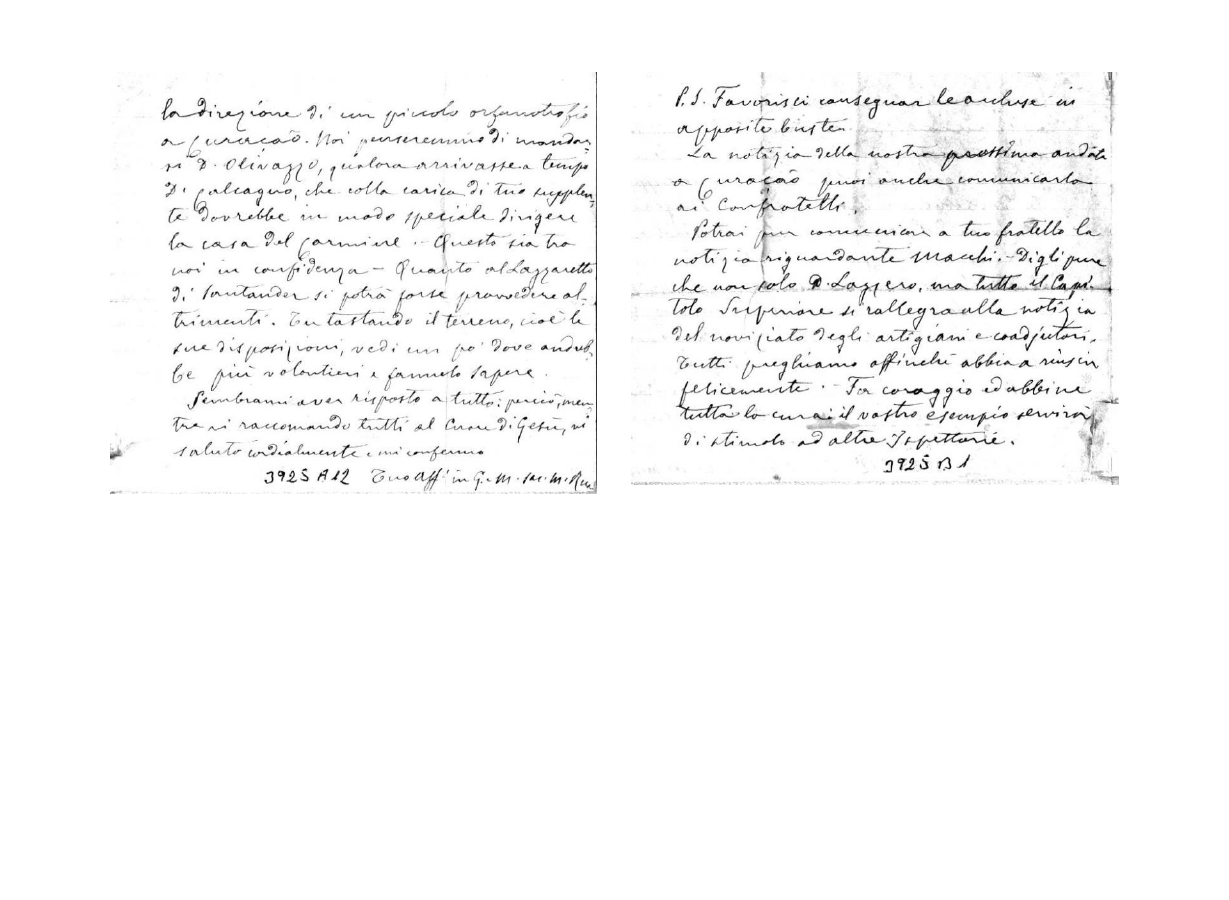 la direzione di un piccolo orfanotrofio
a Curaçao. Noi penseremmo di mandar-
vi D. Olivazzo, qualora arrivasse a tempo
D. Calcagno, che colla carica di tuo supplen-
te dovrebbe in modo speciale dirigere
la casa del Carmine. - Questo sia tra
noi in confidenza - Quanto al Lazzaretto
di Santander si potrà forse provvedere al-
trimenti. Tu tastando il terreno, cioè le
sue disposizioni, vedi un po' dove andreb-
be più volentieri e fammelo sapere.
Sembrami aver risposto a tutto; perciò, men-
tre vi raccomando tutti al Cuore di Gesù, vi
saluto cordialmente e mi confermo
3925 A12 Tuo Aff. in G. M. Sac. M. Rua
P.S. Favorisci consegnar le accluse in
apposite buste.
La notizia della nostra prossima andata
a Curaçao puoi anche comunicarla
ai Confratelli.
Potrai pur comunicare a tuo fratello la
notizia riguardante Macchi. - Digli pure
che non solo D. Lazzero, ma tutto il Capi-
tolo Superiore si rallegra alla notizia
del noviziato degli artigiani e coadjutori.
Tutti preghiamo affinchè abbia a riuscir
felicemente. Fa coraggio ed abbine
tutta la cura: il vostro esempio servirà
di stimolo ad altre Ispettorie.
3925 B1